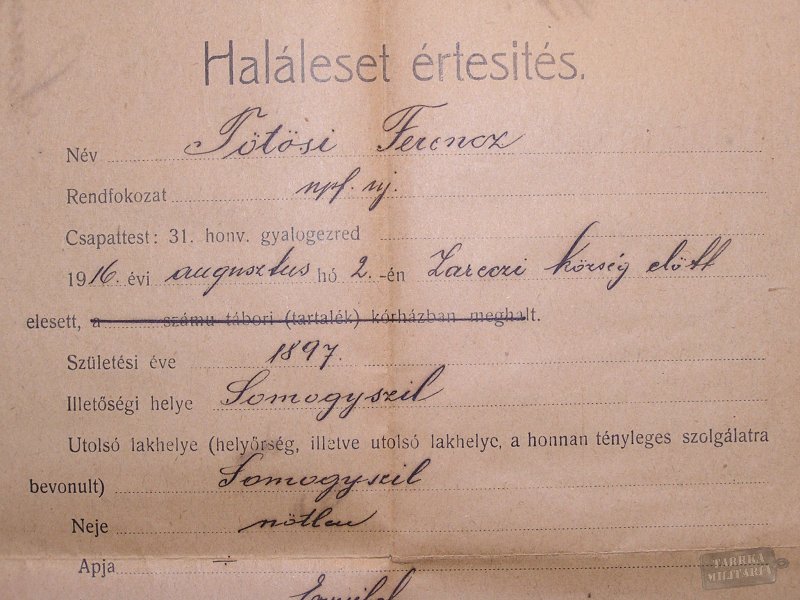 Haláleset értesités.
Név Tötösi Ferencz
Rendfokozat npf. uj.
Csapattest: 31. honv. gyalogezred
1916. évi augusztus hó 2.-én Zareczi község előtt
elesett, a számu tábori (tartalék) kórházban meghalt.
Születési éve 1897.
Illetőségi helye Somogyszil
Utolsó lakhelye (helyőrség, illetve utolsó lakhelye, a honnan tényleges szolgálatra
bevonult) Somogyszil
Neje nőtlen
Apja
TARRKA
MILITARIA